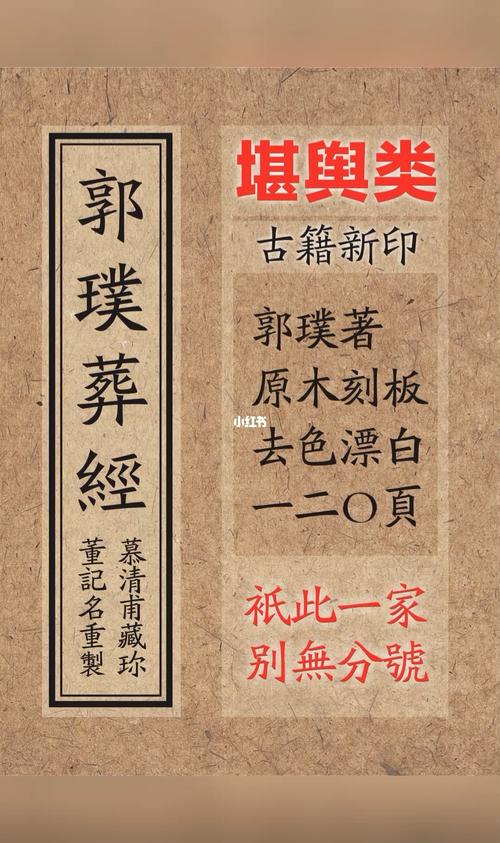 郭璞葬經
慕清甫藏珎
董記名重製
堪舆类
古籍新印
郭璞著
原木刻板
去色漂白
一二〇頁
小红书
衹此一家
别無分號